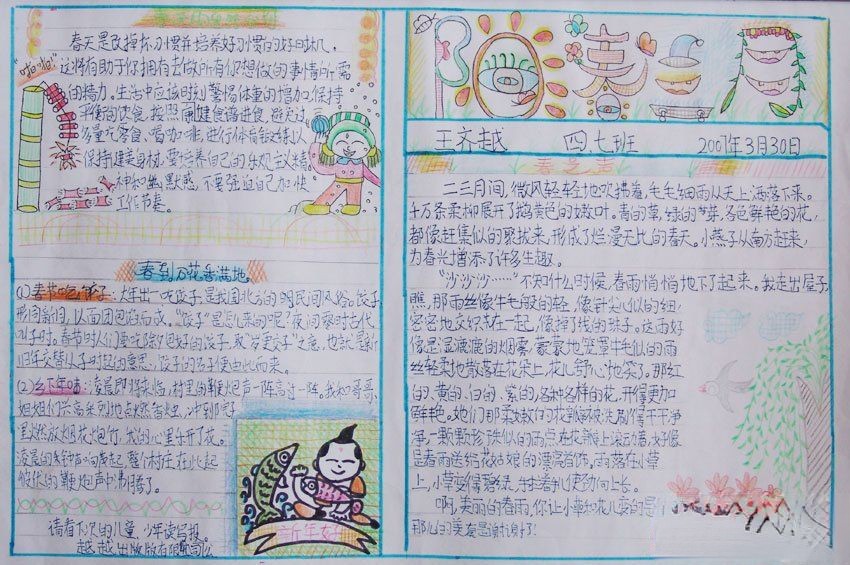 春天是改掉坏习惯并培养好习惯的好时机，
"啪啪"
这将有助于你拥有去做所有你想做的事情所需
的精力，生活中应该时刻警惕体重的增加，保持
平衡的饮食，按照健食谱进食，避免过
多量吃零食、喝咖啡，进行体育锻炼以
保持健美身材，要培养自己的乐观主义精
神和幽默感，不要强迫自己加快
工作节奏。
春到万花香满地
(1)春节吃饺子：大年出一吃饺子，是我国北方的明民间风俗。饺子
形同新月，以面团包馅而成。"饺子"是怎么来的呢？夜间零时古代
叫子时。春节时人们要吃除夕包好的饺子，取"岁更交子"之意，也就是新
旧年交替从子时起的意思，饺子的名子便由此而来。
(2)乡下年味：凌晨即将来临，村里的鞭炮声一阵高过一阵。我和哥哥、
姐姐们兴高采烈地点燃香烛，冲到院子
里燃放烟花炮竹，我的心里乐开了花。
凌晨的钟声响起，整个村庄在此起
彼伏的鞭炮声中沸腾了。
新年好
请看下次的儿童、少年读写报
越越出版有限公
阳
美
王齐越 四.七班 2007年3月30日
春之声
二三月间，微风轻轻地吹拂着，毛毛细雨从天上洒落下来。
千万条柔柳展开了鹅黄色的嫩叶。青的草，绿的芽，各色鲜艳的花，
都像赶集似的聚拢来，形成了烂漫无比的春天。小燕子从南方赶来，
为春光增添了许多生趣。
"沙沙沙……"不知什么时候，春雨悄悄地下了起来。我走出屋子，
瞧，那雨丝像牛毛般的轻，像针尖似的细，
密密地交织在一起，像掉了线的珠子。这雨好
像是湿漉漉的烟雾，蒙蒙地笼罩牛毛似的雨
丝轻柔地散落在花朵上，花儿舒心地笑了。那红
的、黄的、白的、紫的，各种各样的花，开得更加
鲜艳。她们那柔嫩的花瓣被洗刷得干干净
净，一颗颗珍珠似的雨点在花瓣上滚动着，好像
是春雨送给花姑娘的漂亮首饰，雨落在小草
上，小草变得碧绿
啊，美丽的春雨，你让小草和花儿变的是